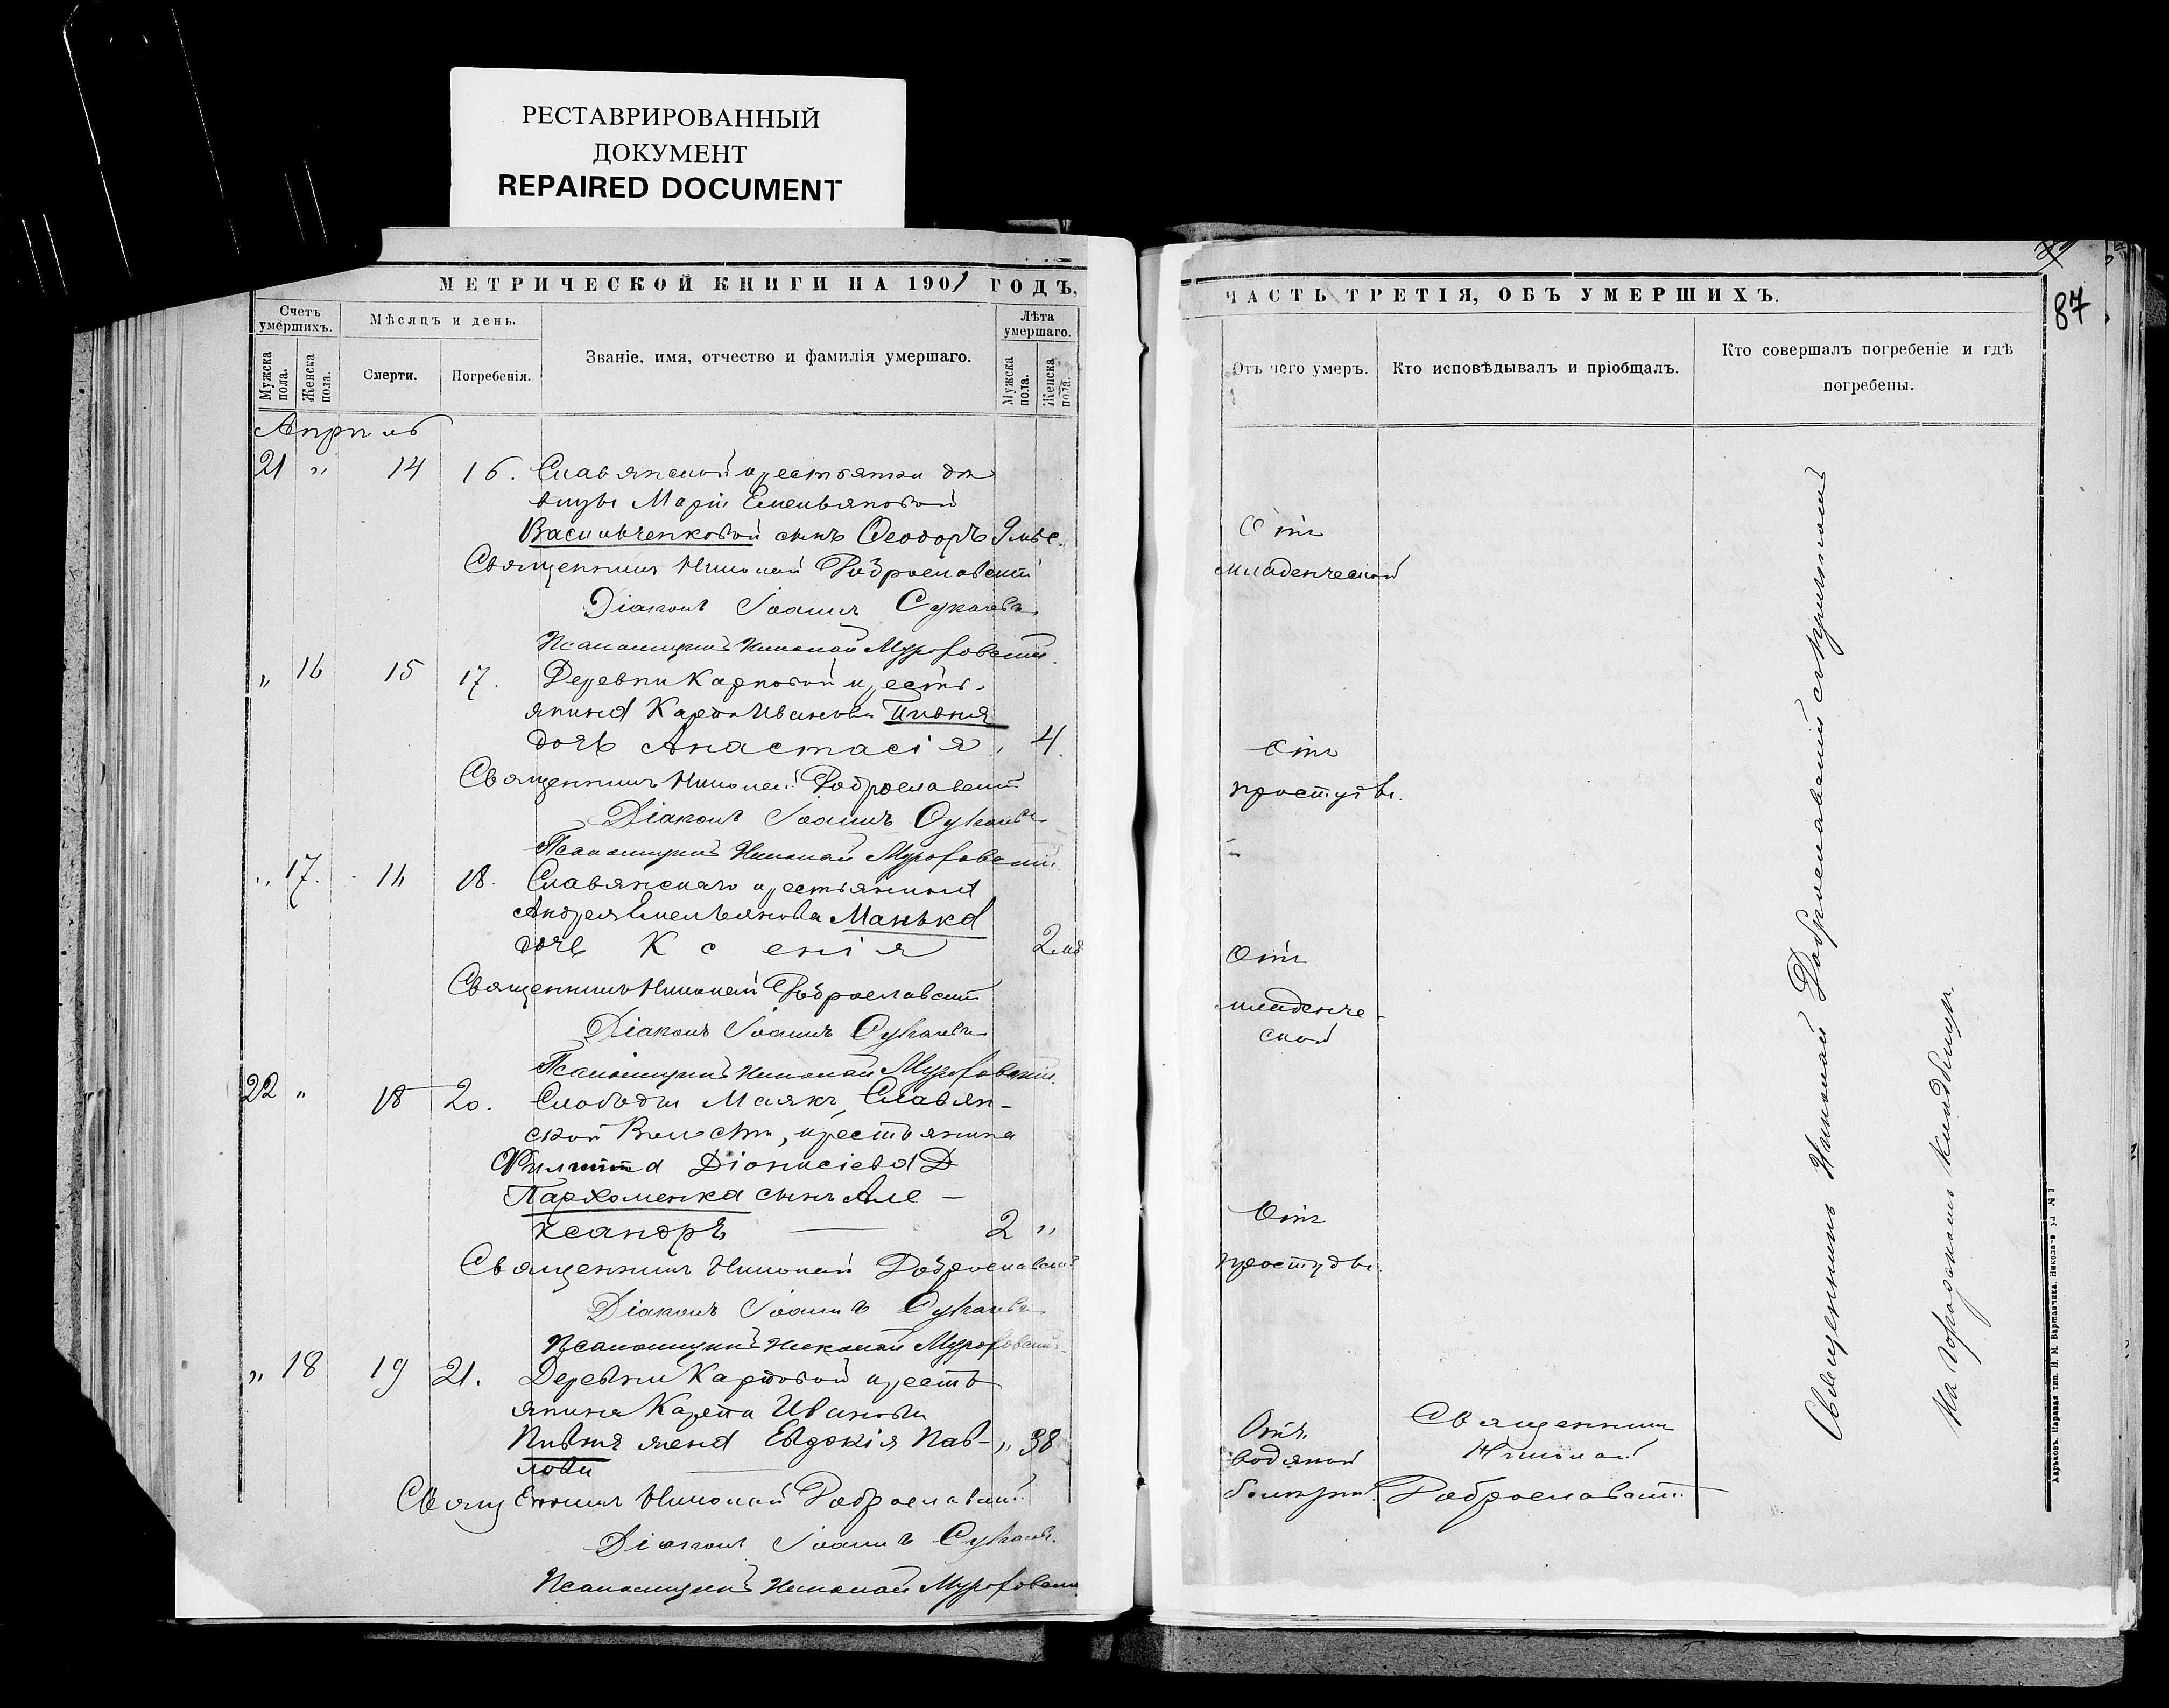 РЕСТАВРИРОВАННЫЙ
ДОКУМЕНТ
REPAIRED DOCUMENT
МЕТРИЧЕСКОЙ КНИГИ НА 1901 ГОДЪ,
Счетъ умершихъ.
Мужска пола.
Женска пола.
Мѣсяцъ и день.
Смерти.
Погребенія.
Званіе, имя, отчество и фамилія умершаго.
Лѣта умершаго.
Мужска пола.
Женска пола.
Апрѣль
21 " 14 16. Славянской крестьянки дѣ
вицы Маріи Емельяновой
Васильченковой сынъ Ѳеодоръ 9 мѣс.
Священникъ Николай Доброславскій
Діаконъ Іоаннъ Сукачевъ
Псаломщикъ Николай
" 16 15 17. Деревни Карповой кресть-
янина Карпа Иванова Пивня
дочь Анастасія, 4.
Священникъ Николай Доброславскій
Діаконъ Іоаннъ Сукачевъ
Псаломщикъ Николай
" 17. 18. Славянскаго крестьянина
Андрея Емельянова Манька
дочь Ксенія 2
Священникъ Николай Доброславскій
Діаконъ Іоаннъ Сукачевъ
Псаломщикъ Николай
22 " 18 20. Слободы Маякъ, Славян-
ской Волости, крестьянина
Филиппа Діонисіева
Пархоменка сынъ Але-
ксандръ 2 "
Священникъ Николай Доброславскій
Діаконъ Іоаннъ Сукачевъ
Псаломщикъ Николай
" 18 19 21. Деревни Карповой кресть
янина Карпа Иванова
Пивня жена Евдокія Пав- " 38
лова
Священникъ Николай Доброславскій
Діаконъ Іоаннъ Сукачевъ
Псаломщикъ Николай
ЧАСТЬ ТРЕТІЯ, ОБЪ УМЕРШИХЪ.
87
Отъ чего умеръ.
Кто исповѣдывалъ и пріобщалъ.
Кто совершалъ погребеніе и гдѣ
погребены.
Отъ
младенческой
Отъ
простуды.
Отъ
младенче-
ской
Отъ
простуды.
Отъ
водяной
болѣзни.
Священникъ
Николай
Доброславскій
Священникъ Николай Доброславскій съ причтомъ
на городскомъ кладбищѣ.
Харьковъ. Паровая тип. И. М. Варшавчика. Николаев. ул. № 3